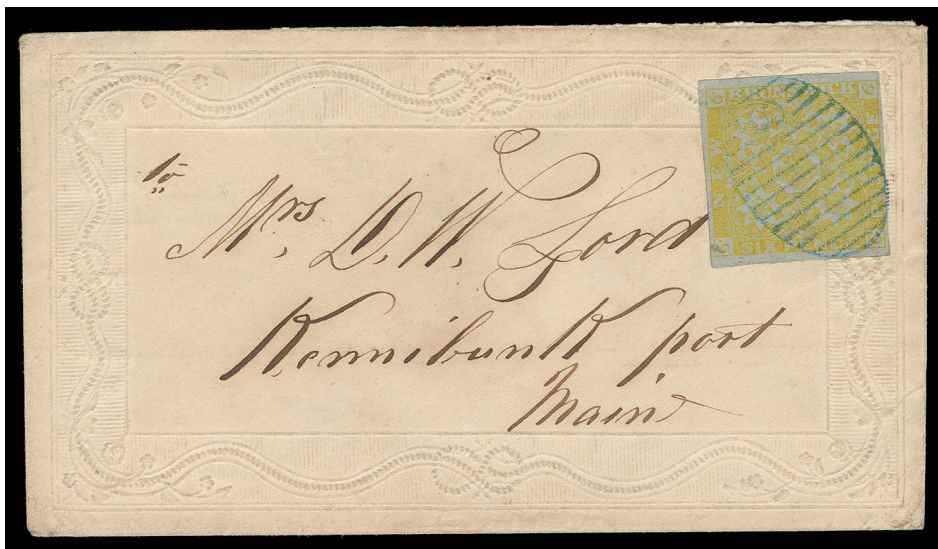 to
Mrs. D. W. Lord
Kennibunk port
Maine
NEW
BRUNSWICK
SIX PENCE